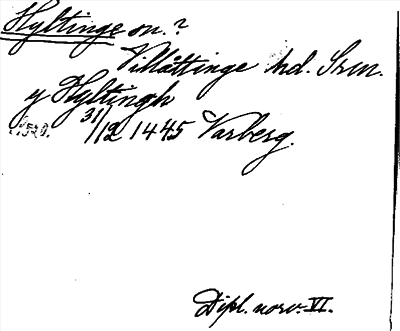 Hyltinge sn.?
Villåttinge hd. Srm.
y Hyltingh
31/12 1445 Varberg.
Dipl. norv. VI.